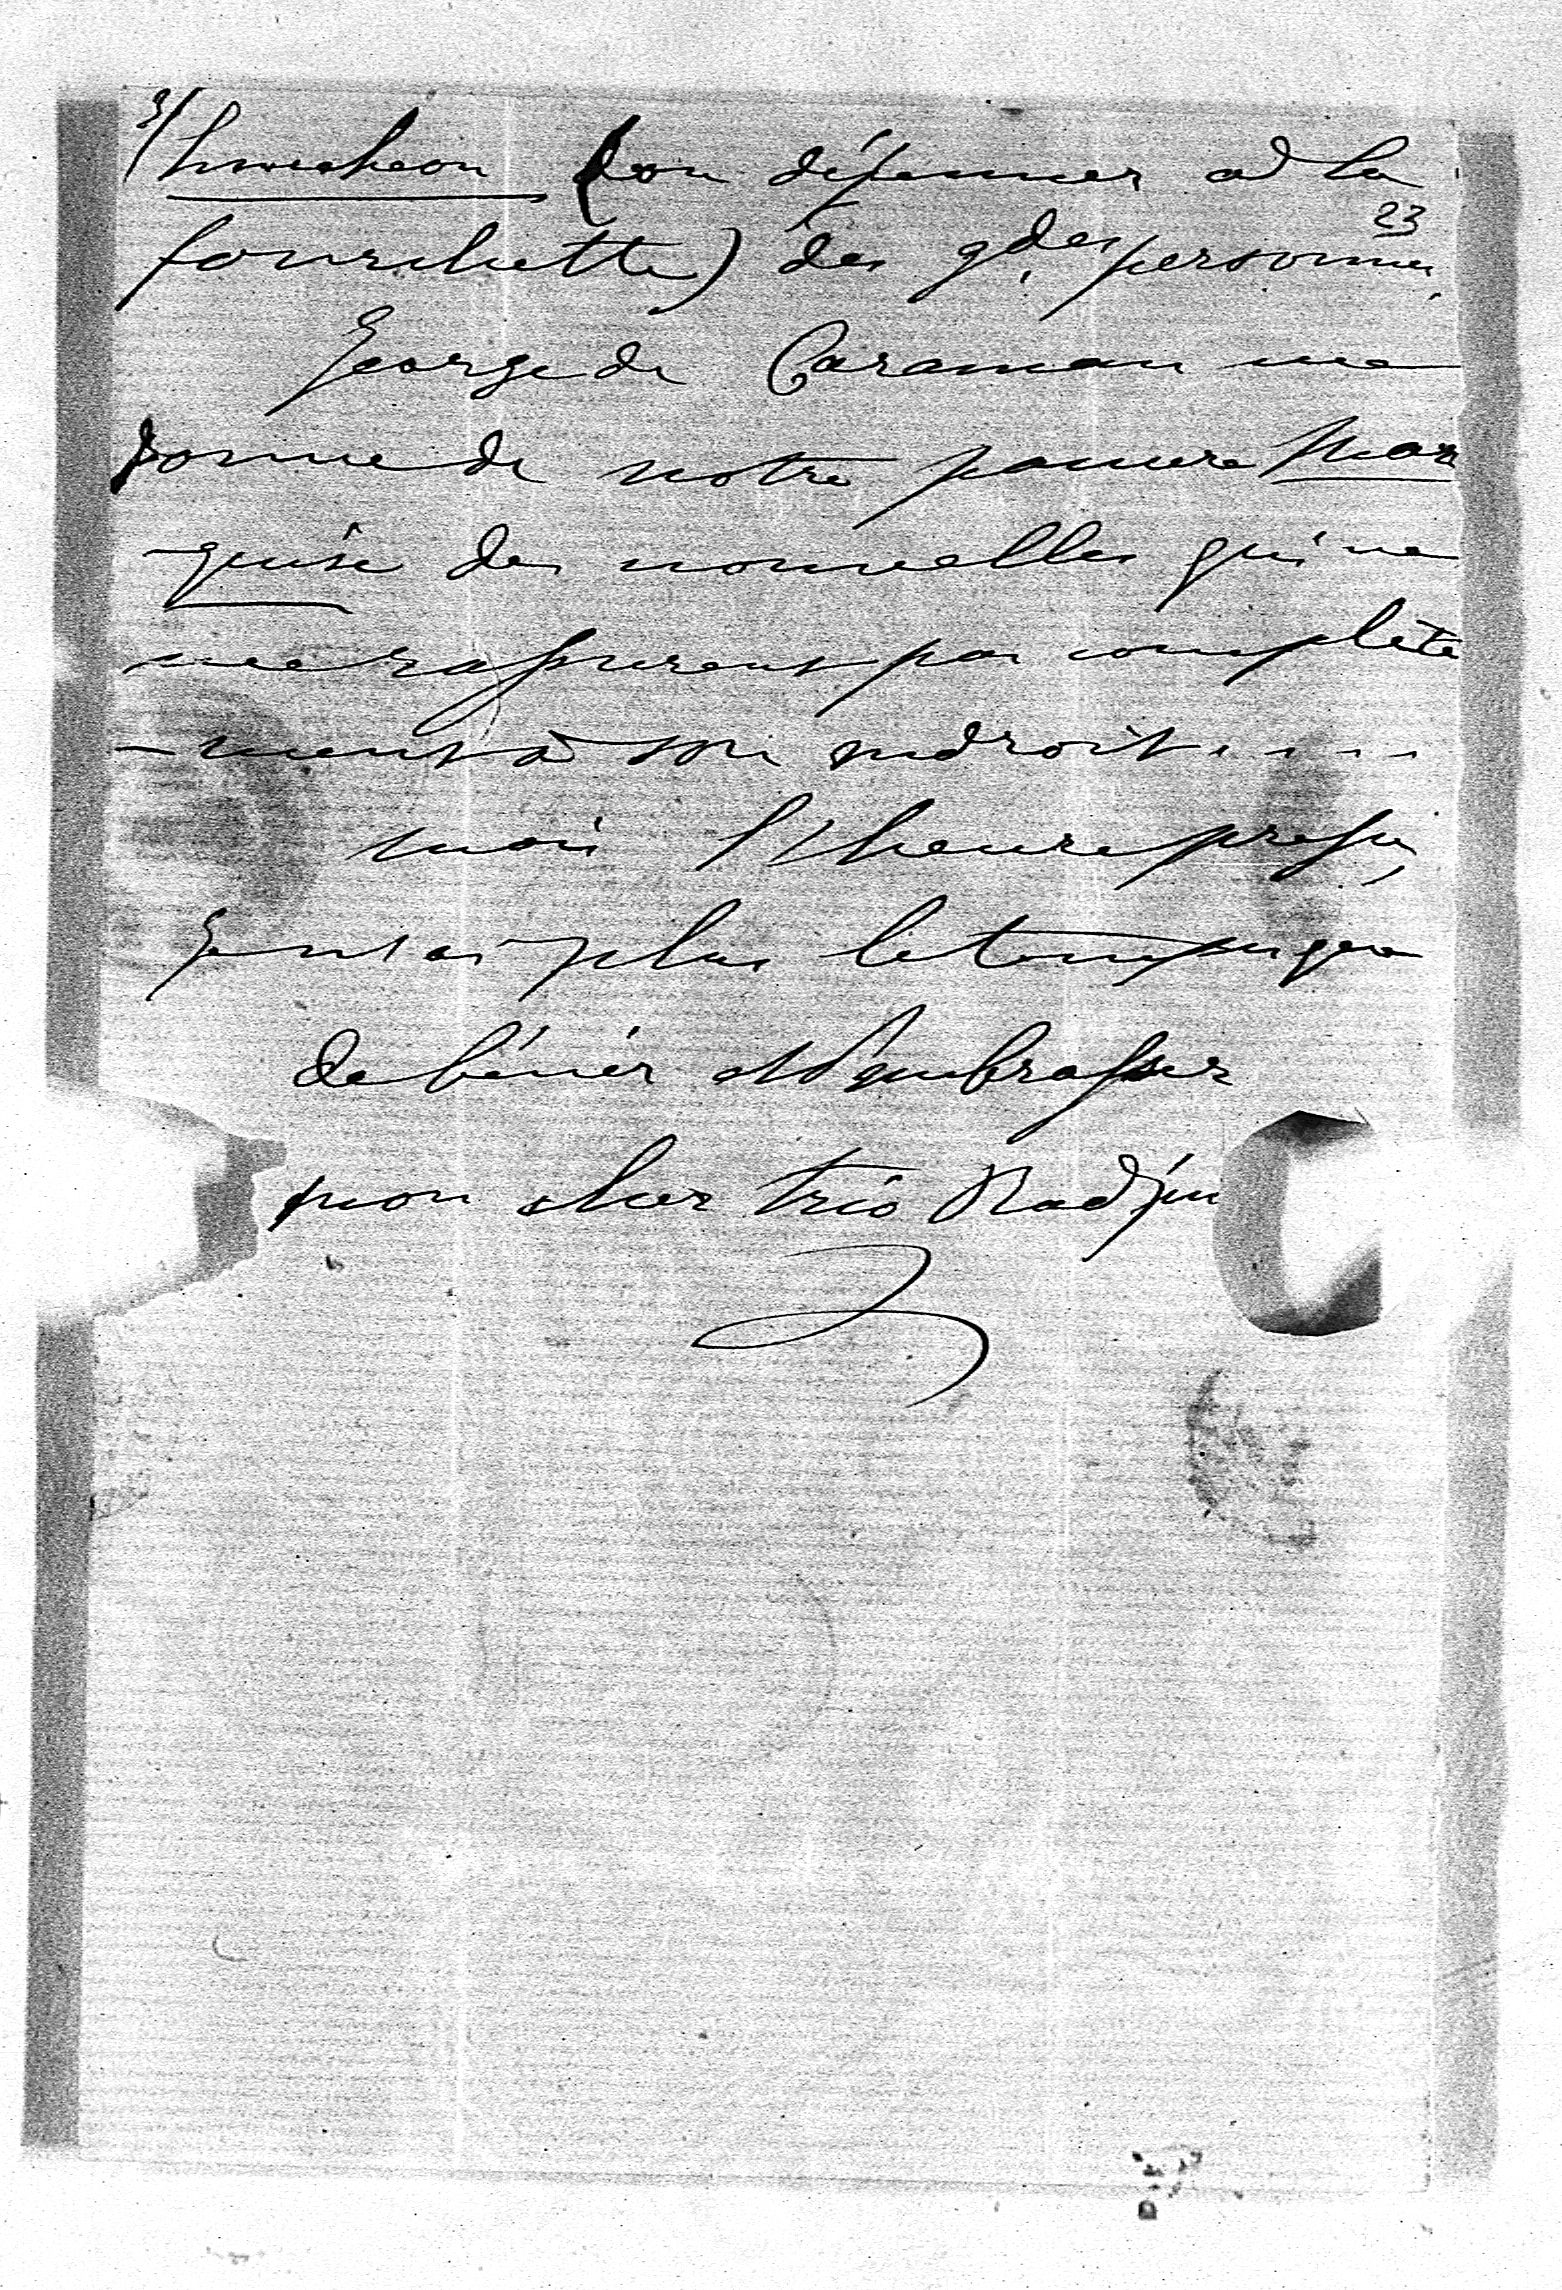 3/ luncheon (ou déjeuner à la
23
fourchette) des gdes personnes.
George de Caraman me
donne de notre pauvre Mar
-quise des nouvelles qui ne
me rassurent pas complète
-ment à son endroit....
mais l'heure presse,
Je n'ai plus le temps que
de bénir et d'embrasser
mon cher trio